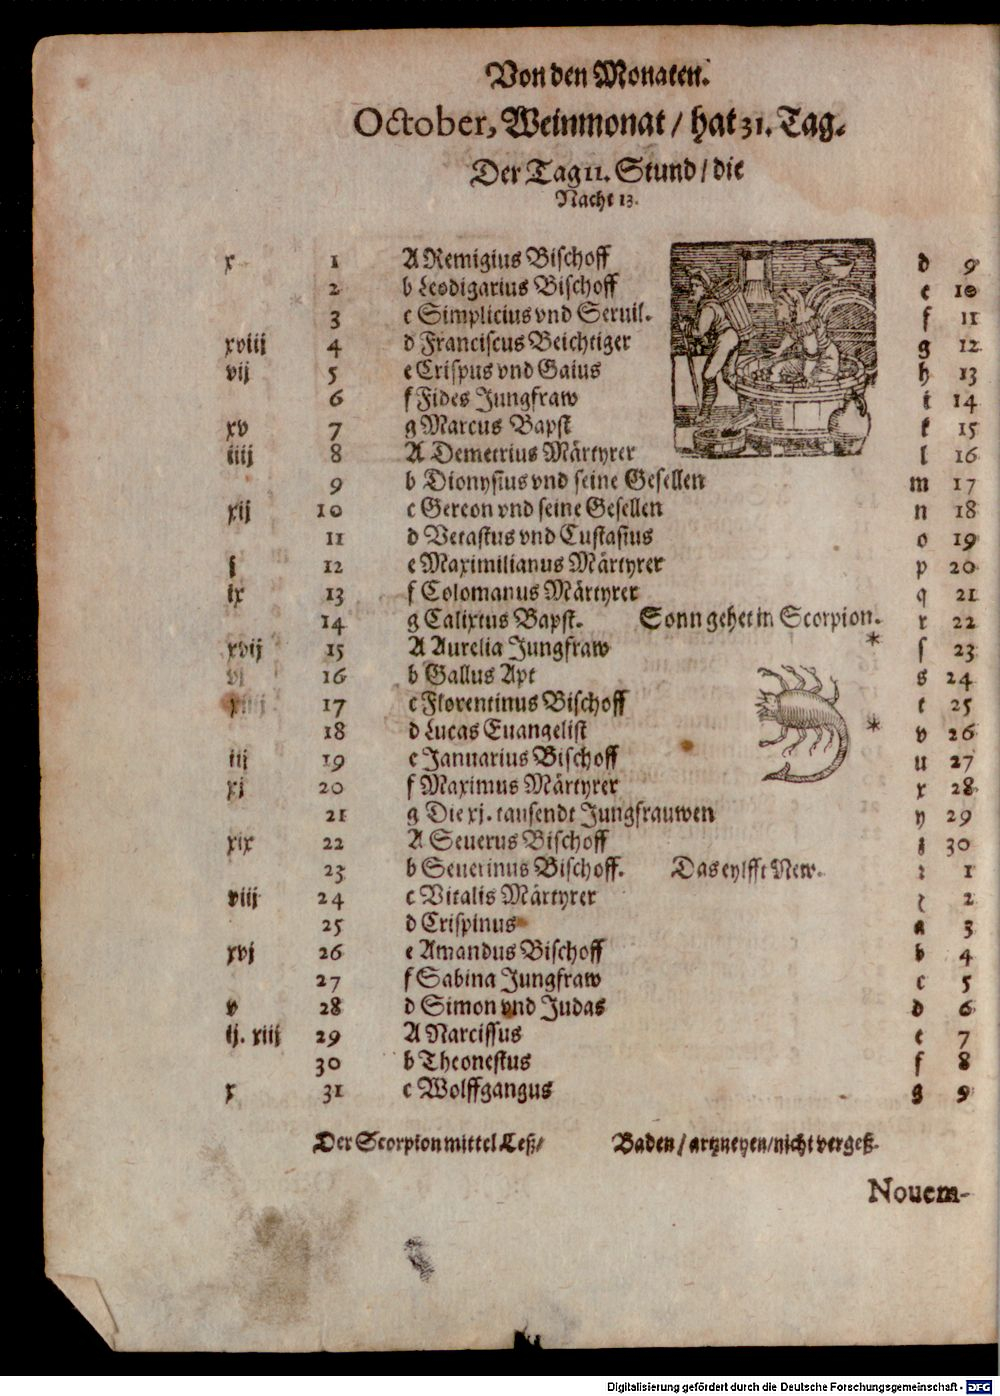 Von den Monaten.
October, Weinmonat / hat 31. Tag.
Der Tag 11. Stund / die
Nacht 13.
x 1 A Remigius Bischoff d 9
2 b Leodigarius Bischoff e 10
3 c Simplicius vnd Seruil. f 11
xviij 4 d Franciscus Beichtiger g 12
vij 5 e Crispus vnd Gaius h 13
6 f Fides Jungfraw i 14
xv 7 g Marcus Bapst k 15
iiij 8 A Demetrius Märtyrer l 16
9 b Dionysius vnd seine Gesellen m 17
xij 10 c Gereon vnd seine Gesellen n 18
11 d Verastus vnd Eustasius o 19
j 12 e Maximilianus Märtyrer p 20
ix 13 f Colomanus Märtyrer q 21
14 g Calixtus Bapst. Sonn gehet in Scorpion. r 22
xvij 15 A Aurelia Jungfraw ſ 23
vj 16 b Gallus Apt s 24
xiiij 17 c Florentinus Bischoff t 25
18 d Lucas Euangelist v 26
iij 19 e Januarius Bischoff u 27
xj 20 f Maximus Märtyrer x 28
21 g Die xj. tausendt Jungfrauwen y 29
xix 22 A Seuerus Bischoff z 30
23 b Seuerinus Bischoff. Das eylfft New. 1
viij 24 c Vitalis Märtyrer 2
25 d Crispinus a 3
xvj 26 e Amandus Bischoff b 4
27 f Sabina Jungfraw c 5
v 28 d Simon vnd Judas d 6
ij. xiij 29 A Narcissus e 7
30 b Theonestus f 8
x 31 c Wolffgangus g 9
Der Scorpion mittel Leß / Baden / artzneyen / nicht vergeß.
Nouem-
Digitalisierung gefördert durch die Deutsche Forschungsgemeinschaft - DFG